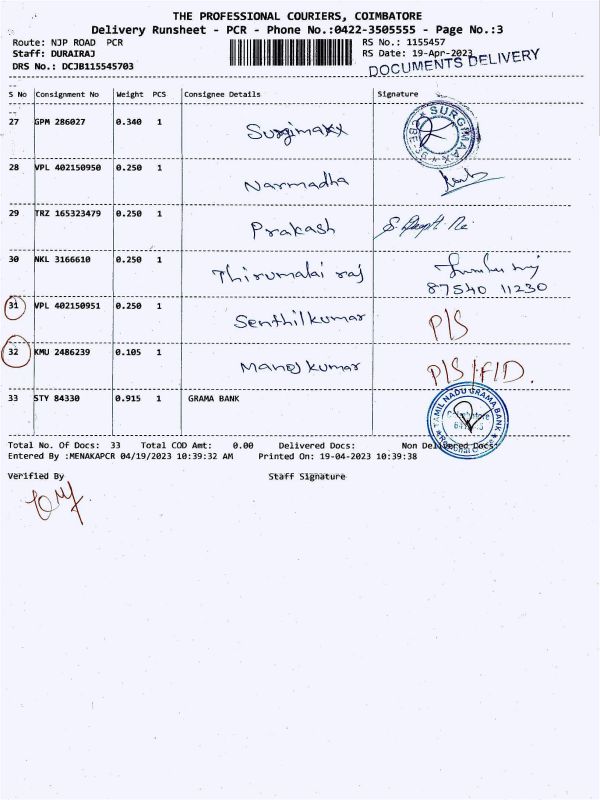 THE PROFESSIONAL COURIERS, COIMBATORE
Delivery Runsheet - PCR - Phone No.:0422-3505555 - Page No.:3
Route: NJP ROAD PCR RS No.: 1155457
Staff: DURAIRAJ RS Date: 19-Apr-2023
DRS No.: DCJB115545703 DOCUMENTS DELIVERY
S No Consignment No Weight PCS Consignee Details Signature
27 GPM 286027 0.340 1 Surgimaxx SURGIMAAX
28 VPL 402150950 0.250 1 Narmadha
29 TRZ 165323479 0.250 1 Prakash
30 NKL 3166610 0.250 1 Thirumalai raj
87540 11230
31 VPL 402150951 0.250 1 Senthilkumar P/S
32 KMU 2486239 0.105 1 Manoj kumar P/S/F/D.
33 STY 84330 0.915 1 GRAMA BANK TAMIL NADU GRAMA BANK
Total No. Of Docs: 33 Total COD Amt: 0.00 Delivered Docs: Non Delivered Docs:
Entered By :MENAKAPCR 04/19/2023 10:39:32 AM Printed On: 19-04-2023 10:39:38
Verified By Staff Signature